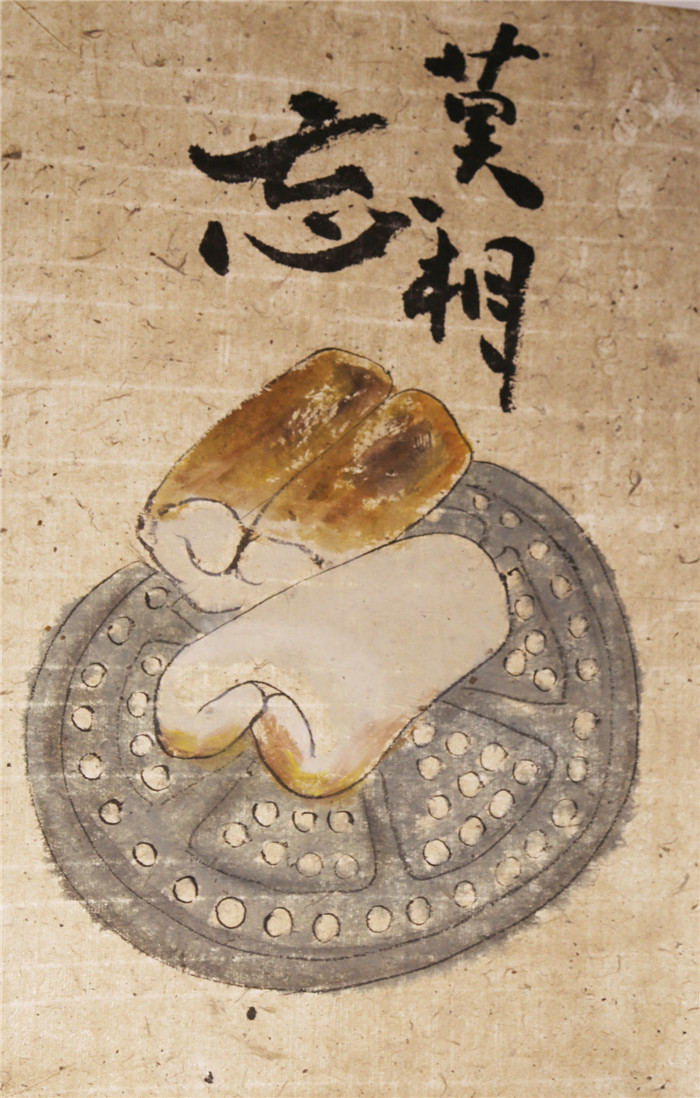 莫相
忘